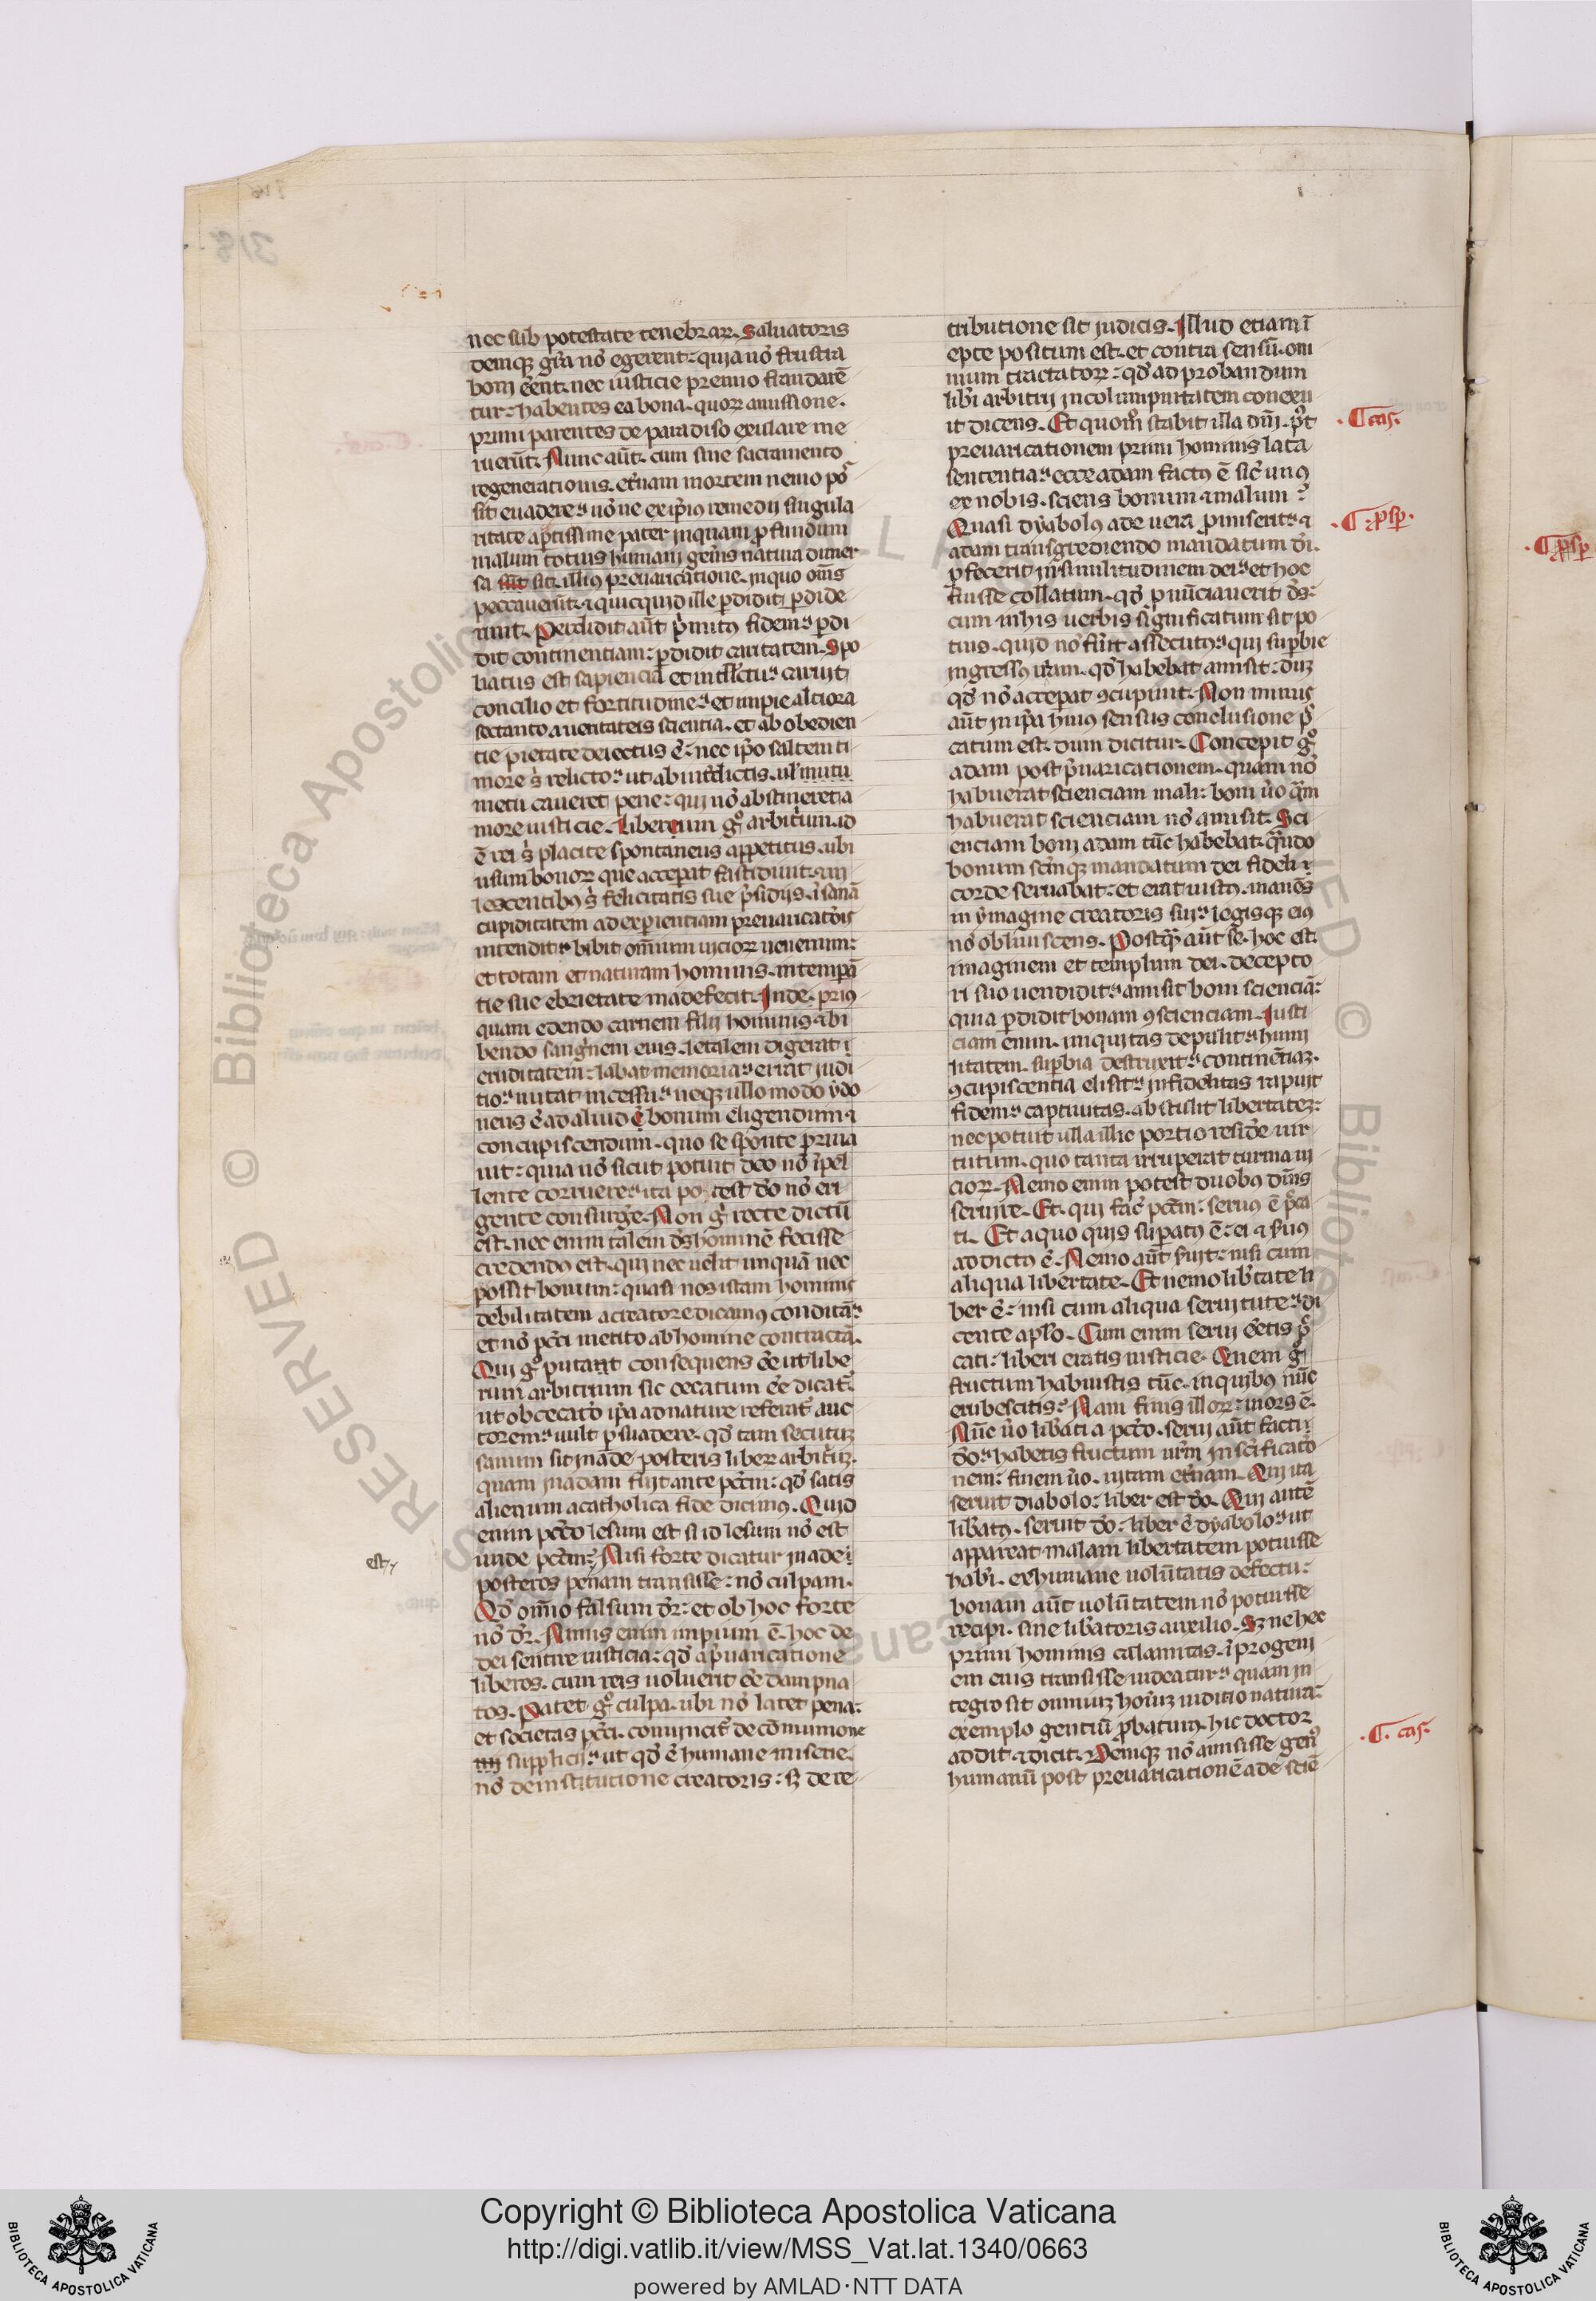 nec sub potestate tenebraꝝ. Saluatoris
demqꝫ gr̄a nō egerent: quia nō frustra
boni eēnt. nec iusticie premio fraudarē
tur: habentes ea bona. quoꝝ amissione.
primi parentes de paradiso exulare me
ruerūt. Nunc aūt. cum sine sacramento
regenerationis. et̄nam mortem nemo pos
sit euadere: nōne ex ip̄ius remedij singula
ritate ap̄tissime patet inquam profundum
malum totius humani gen̄is natura dimer
sa sūt sit. illiꝰ preuaricatione. in quo om̄s
peccauerūt. ⁊ quicquid ille ꝑdidit ꝑdide
runt. Perdidit aūt primitꝰ fidem: ꝑdi
dit continentiam: ꝑdidit caritatem. Spo
liatus est sapiencia et intll̄ctu: caruit
concilio et fortitudine: et impie altiora
sectando a ueritateis scientia. et ab obedien
tie pietate deiectus ē: nec ip̄o saltem ti
more s relicto: ut ab int̄dictis. ul mutu
metu caueret pene: qui nō abstineret a
more iusticie. Libercium gͦ arbitrium. id
ē rei s placite spontaneus appetitus. ubi
usum bonoꝝ que acceꝑat fastidiuit. ⁊ ui
lescentibꝰ s felicitatis sue p̄sidijs. ī sanā
cupiditatem ad exꝑientiam preuaricatōis
intendit: bibit om̄ium uicioꝝ uenenum:
et totam et naturam hominis. intempā
tie sue ebrietate madefecit. Inde. priꝰ
quam edendo carnem filij hominis ⁊ bi
bendo sanguinem eius. letalem digerat ī
cruditatem: labat memoria: errat iudi
tio: nutat incessu: neqꝫ ullo modo ydo
neus ē ad aliud ē bonum eligendum ⁊
concupiscendum. quo se sponte priua
uit: quia nō sicut potuit deo nō īpel
lente corruere: ita po test dō nō eri
gente consurgere. Non gͦ recte dictū
est. nec enim talem dūs hominē fecisse
credendꝰ est. qui nec uelit unquā nec
possit bonum: quasi nos istam hominis
debilitatem a creatore dicamꝰ conditā:
et nō pcc̄i merito ab homine contractā.
Qui gͦ putant consequens eē ut libe
rum arbitrium sic cecatum eē dicat̄.
ut obcecatō ip̄a ad nature referat̄ auc
torem: uult ꝑsuadere. qd̄ tam secutuꝫ
sanum sit in ade posteris liber arbitriuꝫ.
quam in adam fuit ante pcc̄m: qd̄ satis
alienum a catholica fide dicimꝰ. Quid
enim pcc̄o lesum est si id lesum nō est
unde pcc̄m: Nisi forte dicatur in adei
posteros penam transisse: nō culpam.
Qd̄ omīo falsum dr̄: et ob hoc forte
nō dr̄. Nimis enim impium ē. hoc de
dei sentire iusticia: qd̄ a p̄uaricatione
liberos. cum reis uoluerit eē dampna
tos. Patet gͦ culpa. ubi nō latet pena:
et societas pcc̄i. conuincit̄ de cōmunione
supplicij: ut qd̄ ē humane miserie.
nō de institutione creatoris: sꝫ de re
est
tributione sit iudicis. Illud etiam ī
epte positum est. et contra sensū. om
nium tractatoꝝ: qd̄ ad probandum
libri arbitrij incolumpnitatem conexu
it dicens. Et quomͦ stabit illa dn̄i. pt
preuaricationem primi hominis lata
sententia: ecce adam factꝰ ē sic̄ unꝰ
ex nobis. sciens bonum ⁊ malum:
Quasi dyabolꝰ ade uera promiserit: ⁊
adam transgrediendo mandatum dei.
ꝓfecerit in similitudinem dei: et hoc
fuisse collatum. qd̄ ꝓnūciauerit ds̄:
cum in his uerbis significatum sit po
tius. quid nō fūit assecutꝰ: qui suꝑbie
ingressꝰ uiam. qd̄ habebat amisit: duꝫ
qd̄ nō acceꝑat ꝯcupiuit. Non minus
aūt in ip̄a huiꝰ sensus conclusione pec
catum est. dum dicitur. Concepit gͦ
adam post p̄uaricationem. quam nō
habuerat scienciam mali: boni ūo quam
habuerat scienciam nō amisit. Sci
enciam boni adam tūc habebat. quādo
bonum scīmqꝫ mandatum dei fideli ī
corde seruabat: et erat iustꝰ. manēs
in ymagine creatoris sui: legisqꝫ eiꝰ
nō obliuiscens. Postqꝫ aūt sē. hoc est.
imaginem et templum dei. decepto
ri suo uendidit: amisit boni scienciā:
quia ꝑdidit bonam ꝯscienciam. Iusti
ciam enim. iniquitas depulit: humi
litatem. suꝑbia destruxit: continētiaꝫ.
ꝯcupiscentia elisit: infidelitas rapuit
fidem: captiuitas. abstulit libertateꝫ:
nec potuit ulla illic portio residere uir
tutum. quo tanta irruperat turma ui
cioꝝ. Nemo enim potest duobꝰ dn̄is
seruire. Et. qui fac̄ pcc̄m: seruꝰ ē pcca
ti. Et a quo quis suꝑatꝰ ē: ei ⁊ s̄uꝰ
addictꝰ ē. Nemo aūt s̄uit: nisi cum
aliqua libertate. Et nemo lib̄tate li
ber ē: nisi cum aliqua seruitute: di
cente apl̄o. Cum enim serui eētis pec
cati: liberi eratis iusticie. Quem gͦ
fructum habuistis tūc. in quibꝰ nūc
erubescitis: Nam finis illoꝝ: mors ē.
Nūc ūo lib̄ati a pcc̄o. serui aūt facti
dō: habetis fructum ur̄m in scīficatō
nem: finem ūo. uitam et̄nam. Qui ita
seruit diabolo: liber est dō. Qui autē
lib̄atꝰ. seruit dō: liber ē dyabolo: ut
appareat malam libertatem potuisse
habri. ex humane uolūtatis defectu:
bonam aūt uolūtatem nō potuisse
recipi. sine lib̄atoris auxilio. Sꝫ ne hec
primi hominis calamitas. ī progeni
em eius transisse uideatur: quam in
tegro sit omniuꝫ hoīuꝫ iuditio natura:
exemplo gentiū ꝓbatum. hic doctor
addit ⁊ dicit. Demqꝫ nō amisisse genꝰ
humanū post preuaricationē ade sciē
¶ cas.
¶ ꝓsp.
¶ ꝓsp
¶. cas.
Copyright © Biblioteca Apostolica Vaticana
http://digi.vatlib.it/view/MSS_Vat.lat.1340/0663
powered by AMLAD·NTT DATA